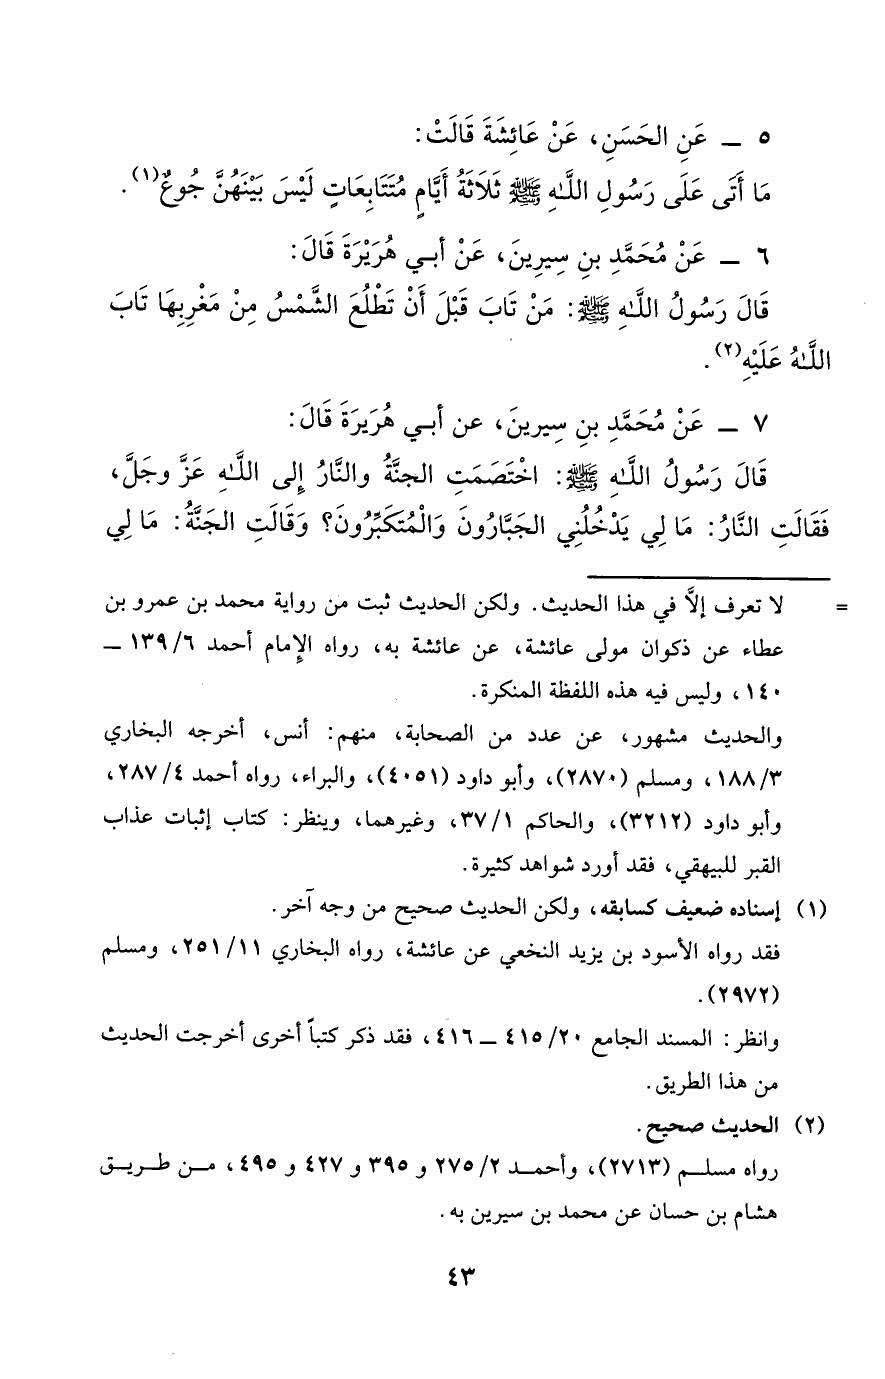 ٥ ــ عَنِ الحَسَنِ، عَنْ عَائِشَةَ قَالَتْ:
مَا أَتَى عَلَى رَسُولِ اللَّهِ ﷺ ثَلَاثَةُ أَيَّامٍ مُتَتَابِعَاتٍ لَيْسَ بَيْنَهُنَّ جُوعٌ(١).
٦ ــ عَنْ مُحَمَّدِ بنِ سِيرِينَ، عَنْ أبي هُرَيْرَةَ قَالَ:
قَالَ رَسُولُ اللَّهِ ﷺ: مَنْ تَابَ قَبْلَ أَنْ تَطْلُعَ الشَّمْسُ مِنْ مَغْرِبِهَا تَابَ
اللَّهُ عَلَيْهِ(٢).
٧ ــ عَنْ مُحَمَّدِ بنِ سِيرينَ، عن أبي هُرَيرَةَ قَالَ:
قَالَ رَسُولُ اللَّهِ ﷺ: اخْتَصَمَتِ الجنَّةُ والنَّارُ إلى اللَّهِ عَزَّ وجَلَّ،
فَقَالَتِ النَّارُ: مَا لِي يَدْخُلُنِي الجَبَّارُونَ وَالْمُتَكَبِّرُونَ؟ وَقَالَتِ الجَنَّةُ: مَا لِي
= لا تعرف إلاَّ في هذا الحديث. ولكن الحديث ثبت من رواية محمد بن عمرو بن
عطاء عن ذكوان مولى عائشة، عن عائشة به، رواه الإمام أحمد ٦/١٣٩ ــ
١٤٠، وليس فيه هذه اللفظة المنكرة.
والحديث مشهور، عن عدد من الصحابة، منهم: أنس، أخرجه البخاري
٣/١٨٨، ومسلم (٢٨٧٠)، وأبو داود (٤٠٥١)، والبراء، رواه أحمد ٤/٢٨٧،
وأبو داود (٣٢١٢)، والحاكم ١/٣٧، وغيرهما، وينظر: كتاب إثبات عذاب
القبر للبيهقي، فقد أورد شواهد كثيرة.
(١) إسناده ضعيف كسابقه، ولكن الحديث صحيح من وجه آخر.
فقد رواه الأسود بن يزيد النخعي عن عائشة، رواه البخاري ١١/٢٥١، ومسلم
(٢٩٧٢).
وانظر: المسند الجامع ٢٠/٤١٥ ــ ٤١٦، فقد ذكر كتباً أخرى أخرجت الحديث
من هذا الطريق.
(٢) الحديث صحيح.
رواه مسلم (٢٧١٣)، وأحمد ٢/٢٧٥ و ٣٩٥ و ٤٢٧ و ٤٩٥، من طريق
هشام بن حسان عن محمد بن سيرين به.
٤٣